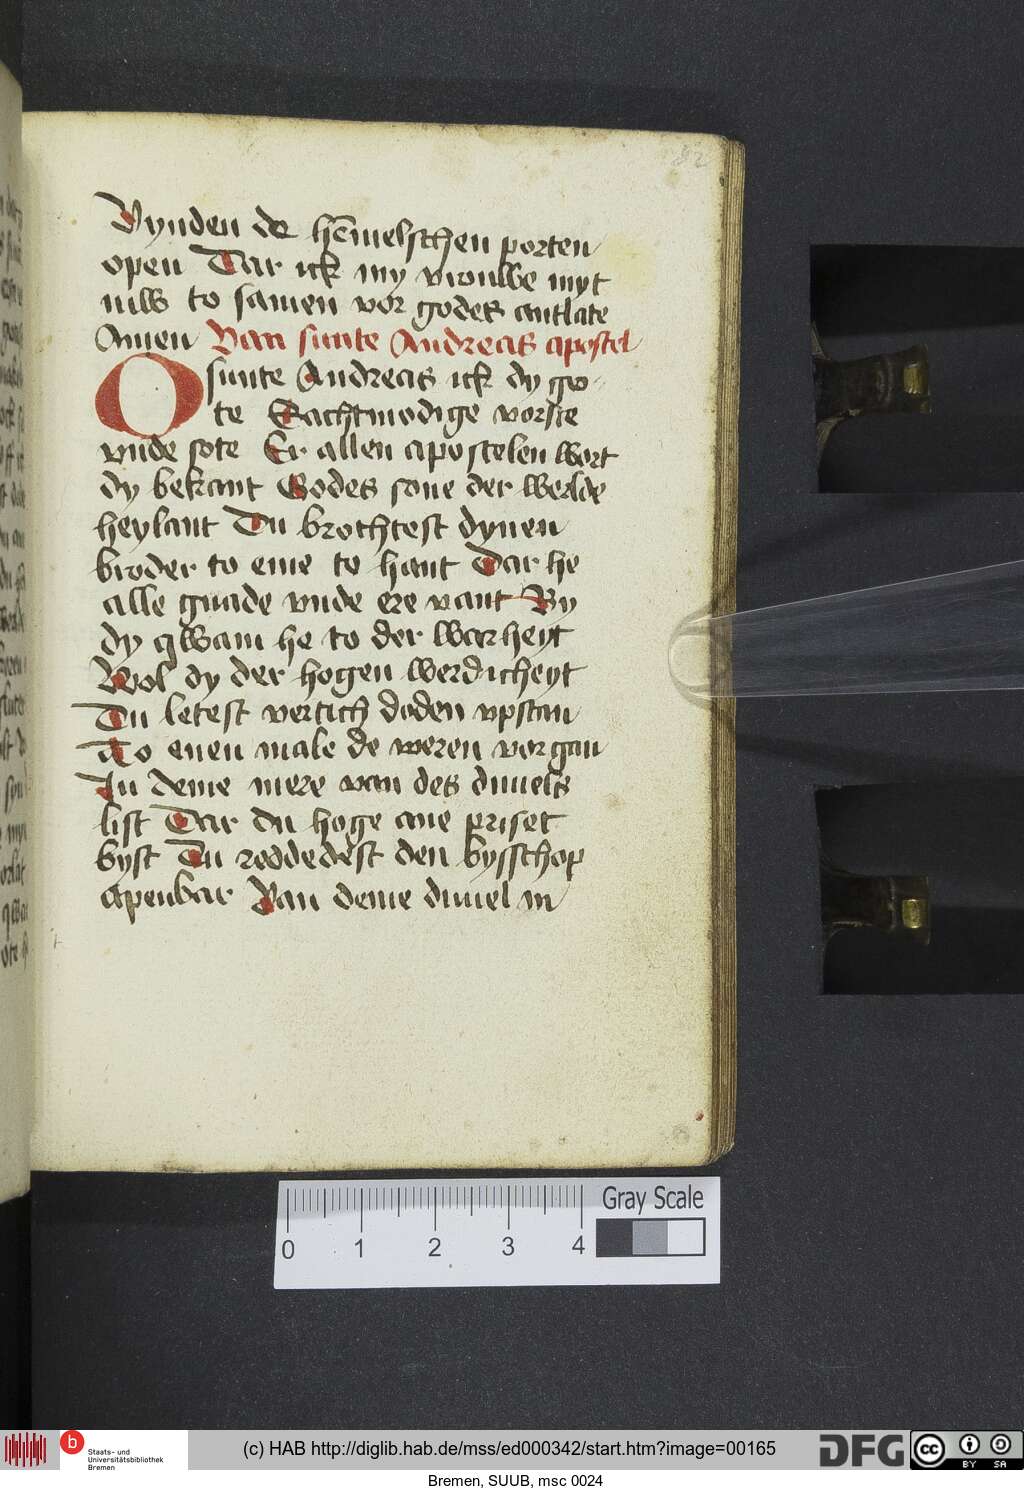 82
Vynden de hemelschen porten
open Dar ick my vrouwe myt
juw to samen vor godes antlate
Amen Van sunte Andreas apostel
O sunte Andreas ick dy gro-
te Sachtmodige vorste
vnde sote Er allen apostelen wort
dy bekant Godes sone der werlde
heylant Du brochtest dynen
broder to eme to hant Dar he
alle gnade vnde ere vant By
dy qwam he to der warheyt
Wol dy der hogen werdicheyt
Du letest vertich doden vpstan
To enen male de weren vorgan
In deme mere van des duuels
list Dar du hoge ane priset
byst Du reddedest den bysschop
apenbar Van deme duuel in
0 1 2 3 4
Gray Scale
b
Staats- und
Universitätsbibliothek
Bremen
(c) HAB http://diglib.hab.de/mss/ed000342/start.htm?image=00165
DFG
cc
BY SA
Bremen, SUUB, msc 0024